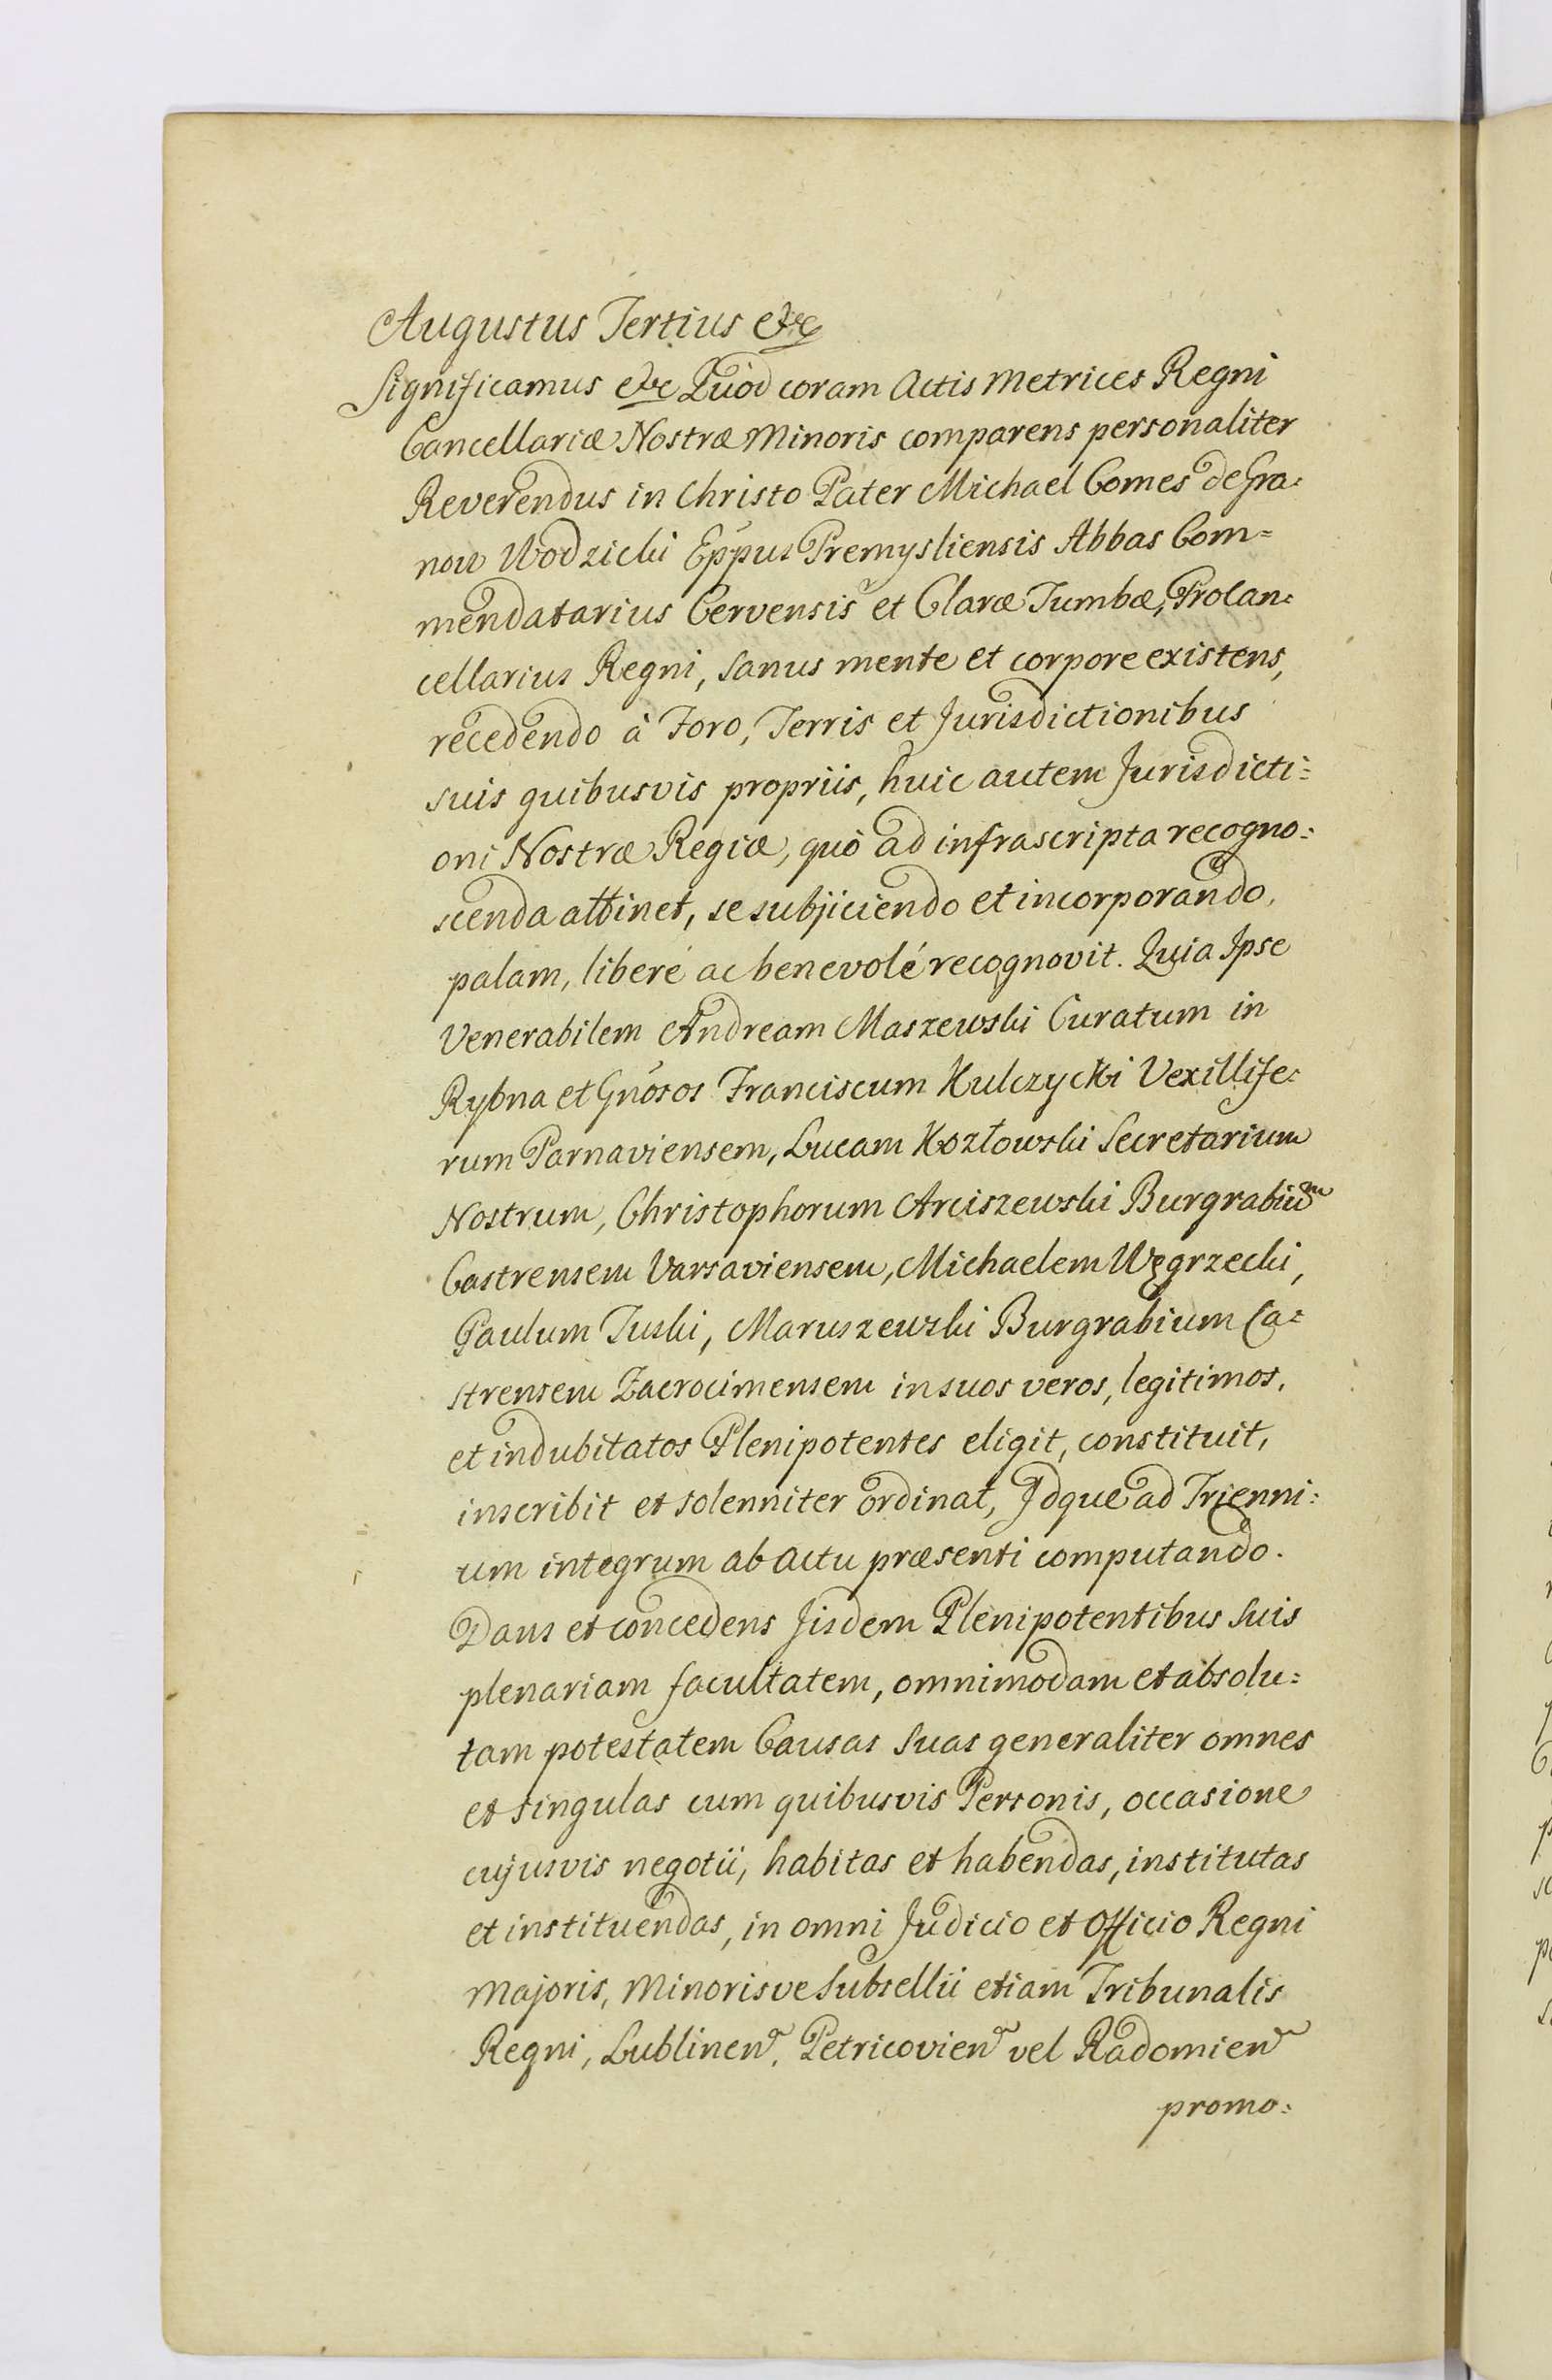 Augustus Tertius etc
Significamus etc Quòd coram Actis Metrices Regni
Cancellariæ Nostræ Minoris comparens personaliter
Reverendus in Christo Pater Michael Comes de Gra=
now Wodzicki Eppus Premysliensis Abbas Com=
mendatarius Cervensis et Claræ Tumbæ, Procan=
cellarius Regni, sanus mente et corpore existens,
recedendo à Foro, Terris et Jurisdictionibus
suis quibusvis propriis, huic autem Jurisdicti=
oni Nostræ Regiæ, quò ad infrascripta recogno=
scenda attinet, se subjiciendo et incorporando,
palam, liberé ac benevolé recognovit. Quia Ipse
Venerabilem Andream Maszewski Curatum in
Rybna et Gnosos Franciscum Kulczycki Vexillife=
rum Parnaviensem, Lucam Kozłowski Secretarium
Nostrum, Christophorum Arciszewski Burgrabiũm
Castrensem Varsaviensem, Michaelem Węgrzecki,
Paulum Tuski, Maruszewski Burgrabium Ca=
strensem Zacrocimensem in suos veros, legitimos,
et indubitatos Plenipotentes eligit, constituit,
inscribit et solenniter ordinat, Idque ad Trienni=
um integrum ab actu præsenti computando.
Dans et concedens Iisdem Plenipotentibus suis
plenariam facultatem, omnimodam et absolu=
tam potestatem Causas suas generaliter omnes
et singulas cum quibusvis Personis, occasione
cujusvis negotii, habitas et habendas, institutas
et instituendas, in omni Judicio et Officio Regni
Majoris, Minorisve Subsellii etiam Tribunalis
Regni, Lublinen, Petricovien vel Radomien
promo=